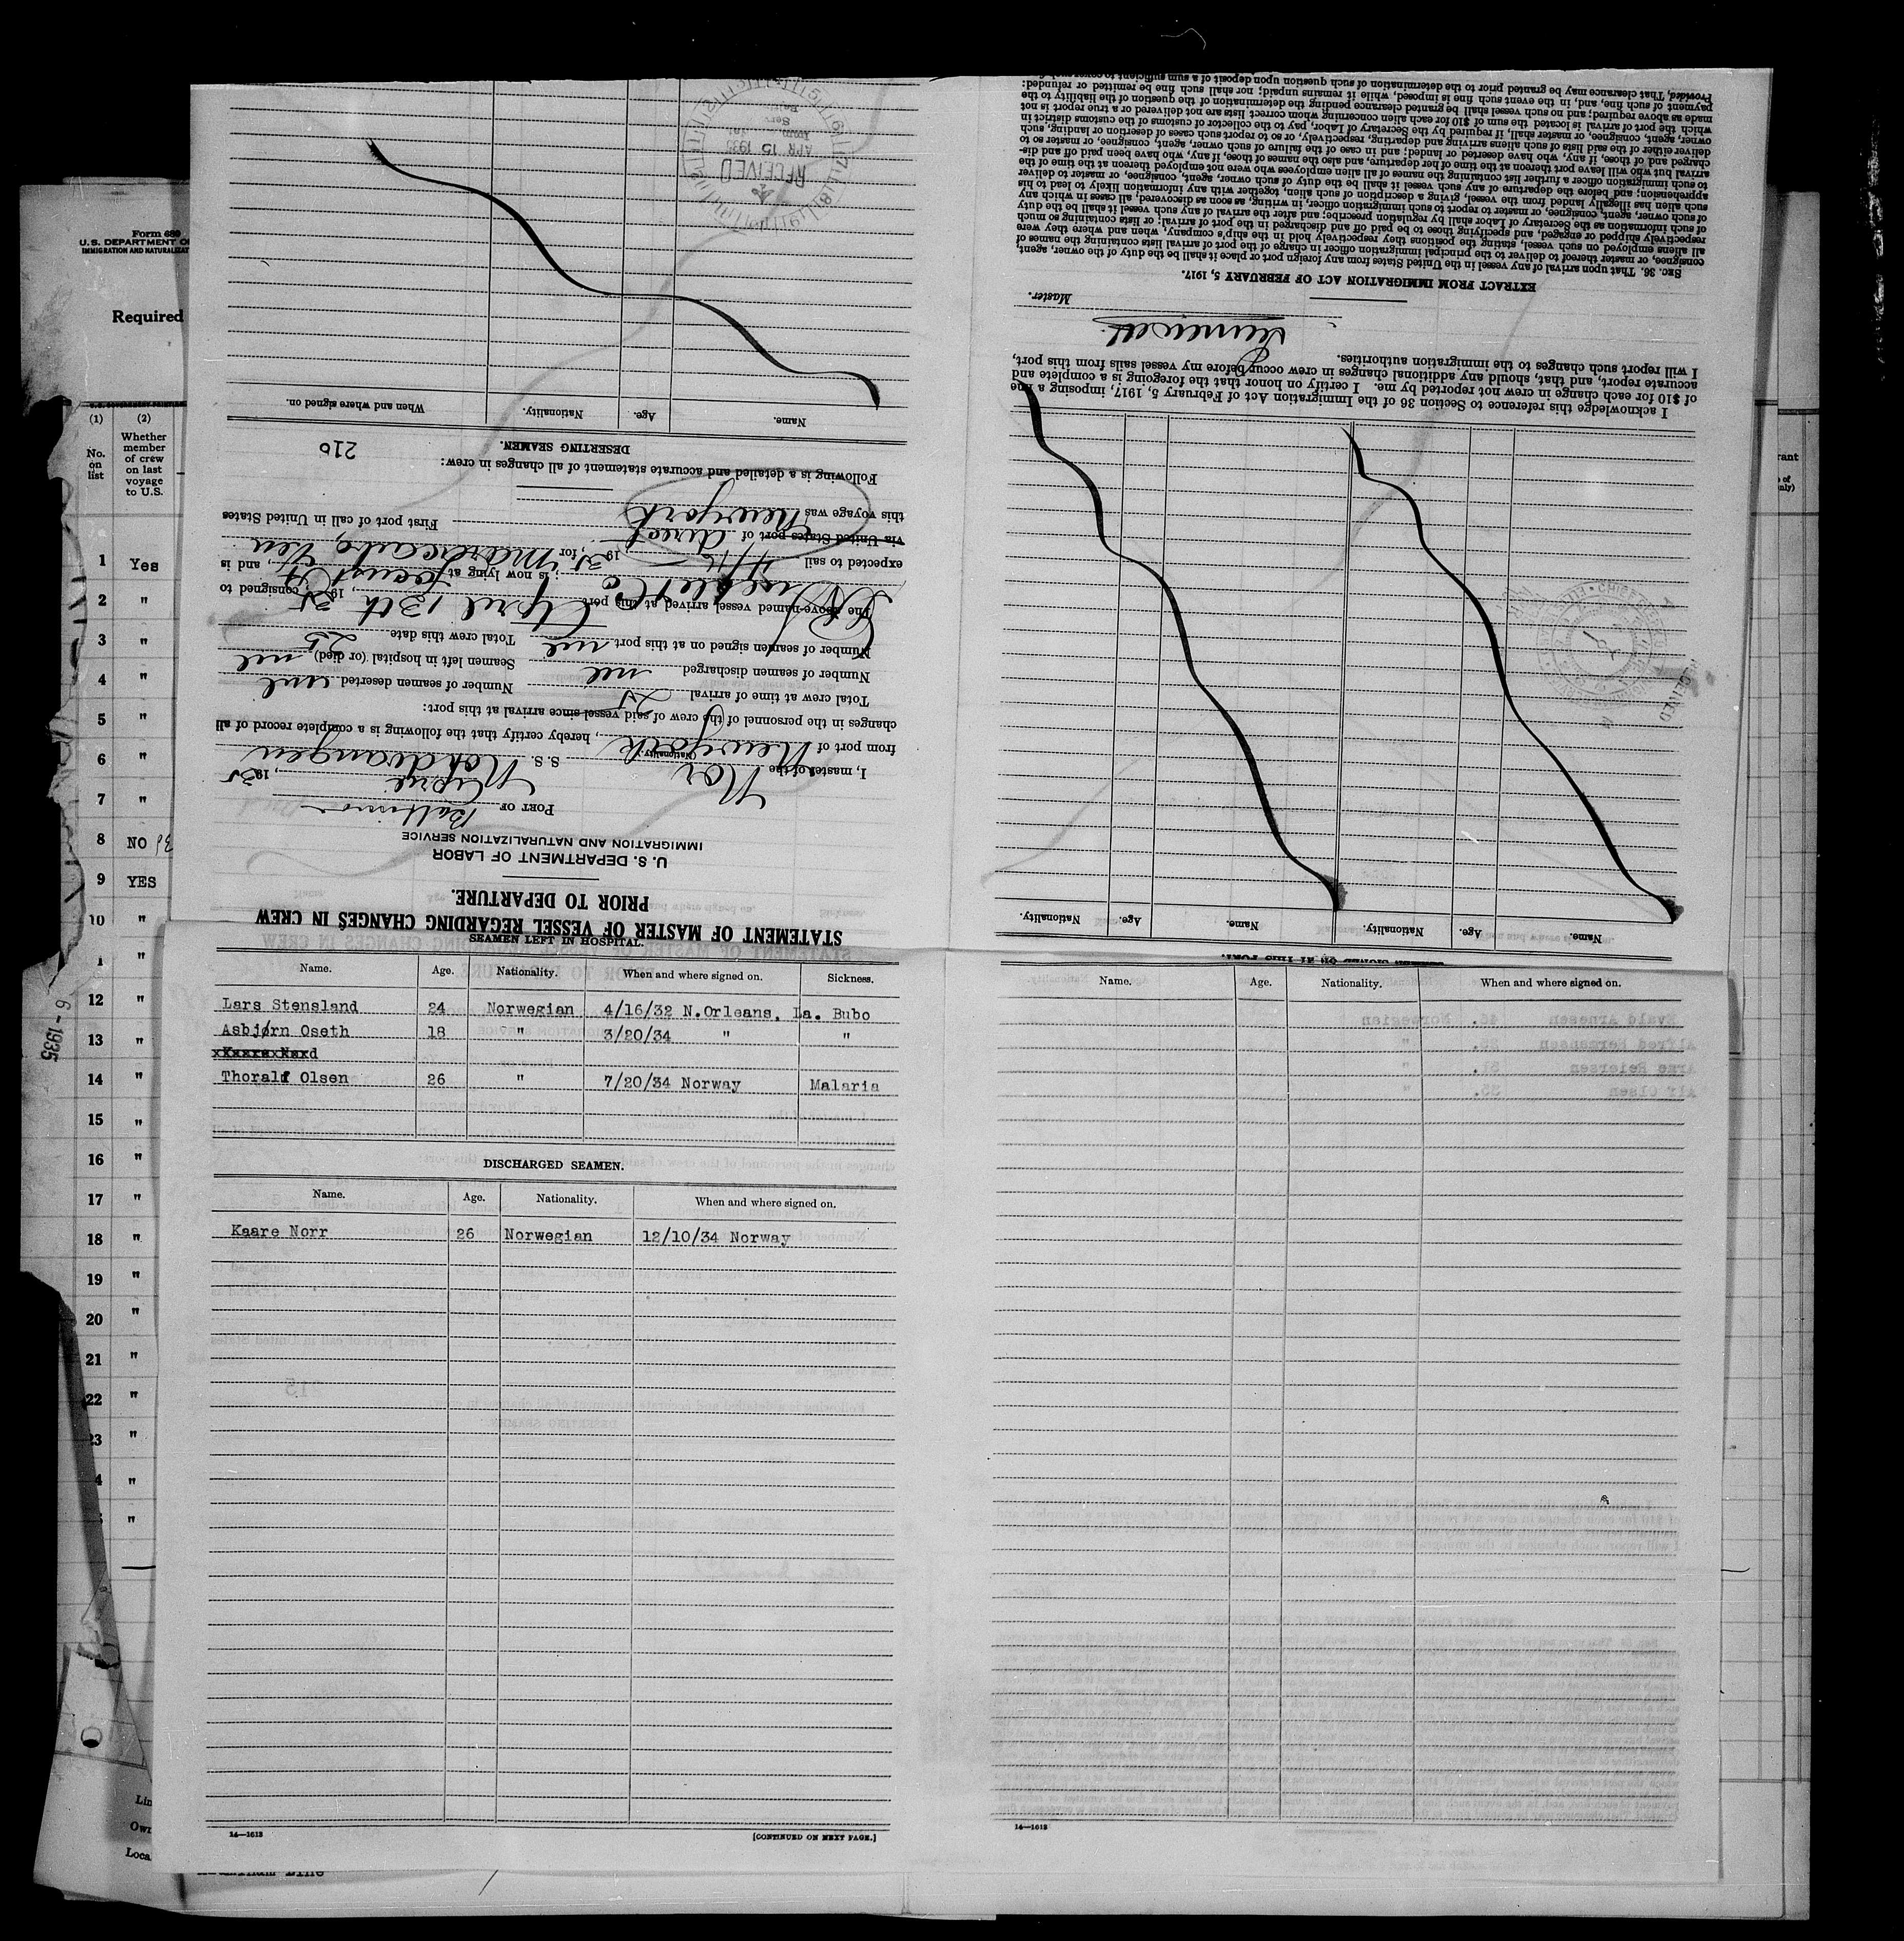 Form 689
U.S. DEPARTMENT O
IMMIGRATION AND NATURALIZAT
Required
(1) (2)
No. on list
Whether member of crew on last voyage to U.S.
1 Yes
2 "
3 "
4 "
5 "
6 "
7 "
8 NO
9 YES
10 "
1 "
12 "
13 "
14 "
15 "
16 "
17 "
18 "
19 "
20 "
21 "
22 "
23 "
4 "
"
6-1935
Lin
Own
Loca
STATEMENT OF MASTER OF VESSEL REGARDING CHANGES IN CREW
PRIOR TO DEPARTURE.
U. S. DEPARTMENT OF LABOR
IMMIGRATION AND NATURALIZATION SERVICE
PORT OF Baltimore
April, 1935
I, master of the Nor (Nationality) S. S. Nordvangen
from port of New York, hereby certify that the following is a complete record of all
changes in the personnel of the crew of said vessel since arrival at this port:
Total crew at time of arrival 25 Number of seamen deserted nil
Number of seamen discharged nil Seamen left in hospital (or died) nil
Number of seamen signed on at this port nil Total crew this date 25
The above-named vessel arrived at this port April 13th, 1935, consigned to
is now lying at Locust Pt, and is
expected to sail 4/15 1935, for Maracaibo, Ven
via United States port of direct
this voyage was New York First port of call in United States
Following is a detailed and accurate statement of all changes in crew:
210
DESERTING SEAMEN.
Name. Age. Nationality. When and where signed on.
RECEIVED
APR 15 1935
SEAMEN SIGNED ON AT THIS PORT.
Name. Age. Nationality. Name. Age. Nationality.
I acknowledge this reference to Section 36 of the Immigration Act of February 5, 1917, imposing a fine
of $10 for each change in crew not reported by me. I certify on honor that the foregoing is a complete and
accurate report, and that, should any additional changes in crew occur before my vessel sails from this port,
I will report such changes to the immigration authorities.
Master.
EXTRACT FROM IMMIGRATION ACT OF FEBRUARY 5, 1917.
SEC. 36. That upon arrival of any vessel in the United States from any foreign port or place it shall be the duty of the owner, agent,
consignee, or master thereof to deliver to the principal immigration officer in charge of the port of arrival lists containing the names of
all aliens employed on such vessel, stating the positions they respectively hold in the ship's company, when and where they were
respectively shipped or engaged, and specifying those to be paid off and discharged in the port of arrival; or lists containing so much
of such information as the Secretary of Labor shall by regulation prescribe; and after the arrival of any such vessel it shall be the duty
of such owner, agent, consignee, or master to report to such immigration officer, in writing, as soon as discovered, all cases in which any
such alien has illegally landed from the vessel, giving a description of such alien, together with any information likely to lead to his
apprehension; and before the departure of any such vessel it shall be the duty of such owner, agent, consignee, or master to deliver
to such immigration officer a further list containing the names of all alien employees who were not employed thereon at the time of the
arrival but who will leave port thereon at the time of her departure, and also the names of those, if any, who have been paid off and dis-
charged and of those, if any, who have deserted or landed; and in case of the failure of such owner, agent, consignee, or master so to
deliver either of the said lists of such aliens arriving and departing, respectively, or so to report such cases of desertion or landing, such
owner, agent, consignee, or master shall, if required by the Secretary of Labor, pay to the collector of customs of the customs district in
which the port of arrival is located the sum of $10 for each alien concerning whom correct lists are not delivered or a true report is not
made as above required; and no such vessel shall be granted clearance pending the determination of the question of the liability to the
payment of such fine, and, in the event such fine is imposed, while it remains unpaid; nor shall such fine be remitted or refunded:
Provided, That clearance may be granted prior to the determination of such question upon deposit of a sum sufficient to cover such fine
SEAMEN LEFT IN HOSPITAL.
Name. Age. Nationality. When and where signed on. Sickness.
Lars Stensland 24 Norwegian 4/16/32 N.Orleans, La. Bubo
Asbjørn Oseth 18 " 3/20/34 " "
Thoralf Olsen 26 " 7/20/34 Norway Malaria
DISCHARGED SEAMEN.
Name. Age. Nationality. When and where signed on.
Kaare Norr 26 Norwegian 12/10/34 Norway
14—1613 [CONTINUED ON NEXT PAGE.]
Name. Age. Nationality. When and where signed on.
14—1613